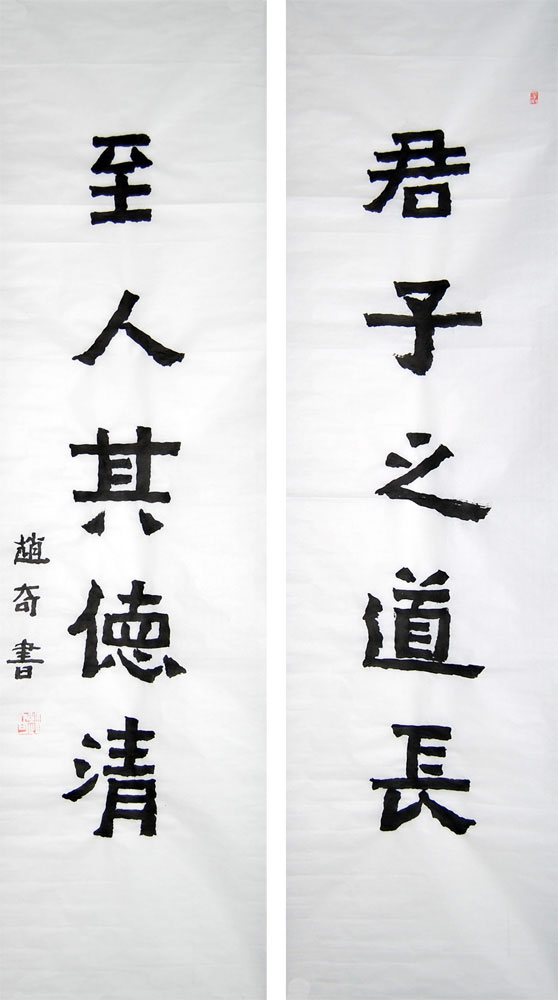 君子之道長
至人其德清
趙奇書